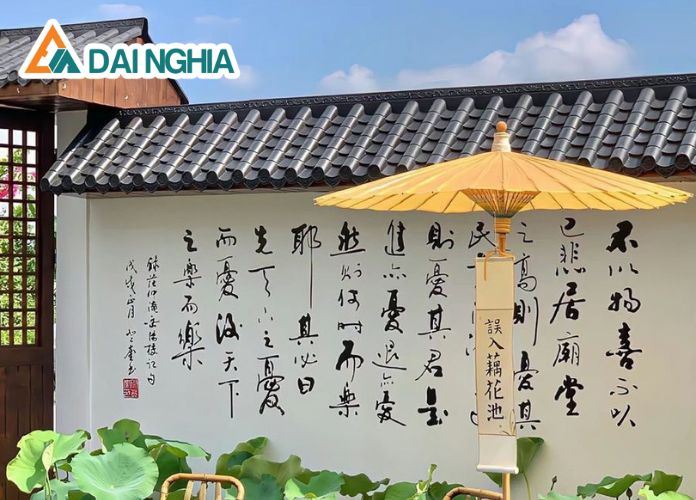 DAI NGHIA
不以物喜不以
己悲居廟堂
之高則憂其
民
則憂其君是
進亦憂退亦憂
然則何時而樂
耶其必曰
先天下之憂
而憂後天下
之樂而樂
錄范仲淹岳陽樓記句
誤入藕花池